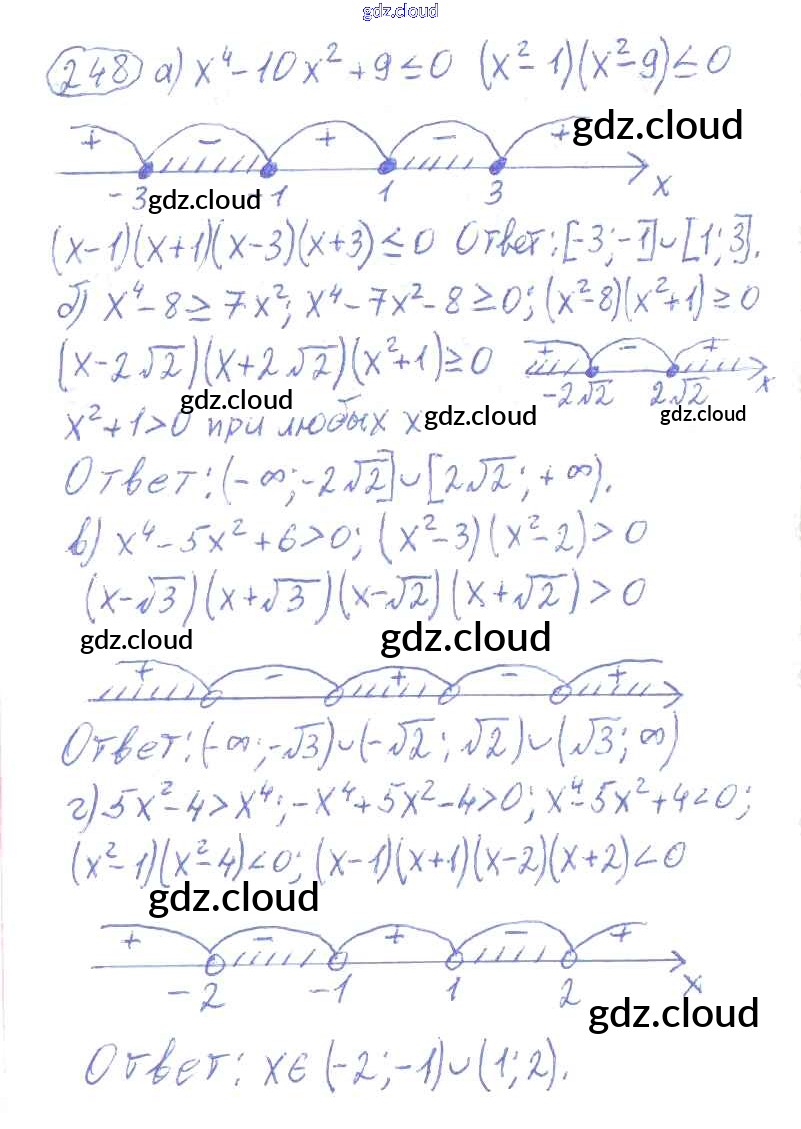 gdz.cloud
248 а) x⁴-10x²+9≤0 (x²-1)(x²-9)≤0
+ - + - +
gdz.cloud
-3 -1 1 3 x
gdz.cloud
(x-1)(x+1)(x-3)(x+3)≤0 Ответ: [-3;-1]∪[1;3].
б) x⁴-8≥7x²; x⁴-7x²-8≥0; (x²-8)(x²+1)≥0
(x-2√2)(x+2√2)(x²+1)≥0 + - +
-2√2 2√2 x
gdz.cloud
x²+1>0 при любых x
gdz.cloud gdz.cloud
Ответ: (-∞;-2√2]∪[2√2;+∞).
в) x⁴-5x²+6>0; (x²-3)(x²-2)>0
(x-√3)(x+√3)(x-√2)(x+√2)>0
gdz.cloud gdz.cloud
+ - + - +
Ответ: (-∞;-√3)∪(-√2;√2)∪(√3;∞)
г) 5x²-4>x⁴; -x⁴+5x²-4>0; x⁴-5x²+4<0;
(x²-1)(x²-4)<0; (x-1)(x+1)(x-2)(x+2)<0
gdz.cloud
+ - + - +
-2 -1 1 2 x
gdz.cloud
Ответ: x∈(-2;-1)∪(1;2).